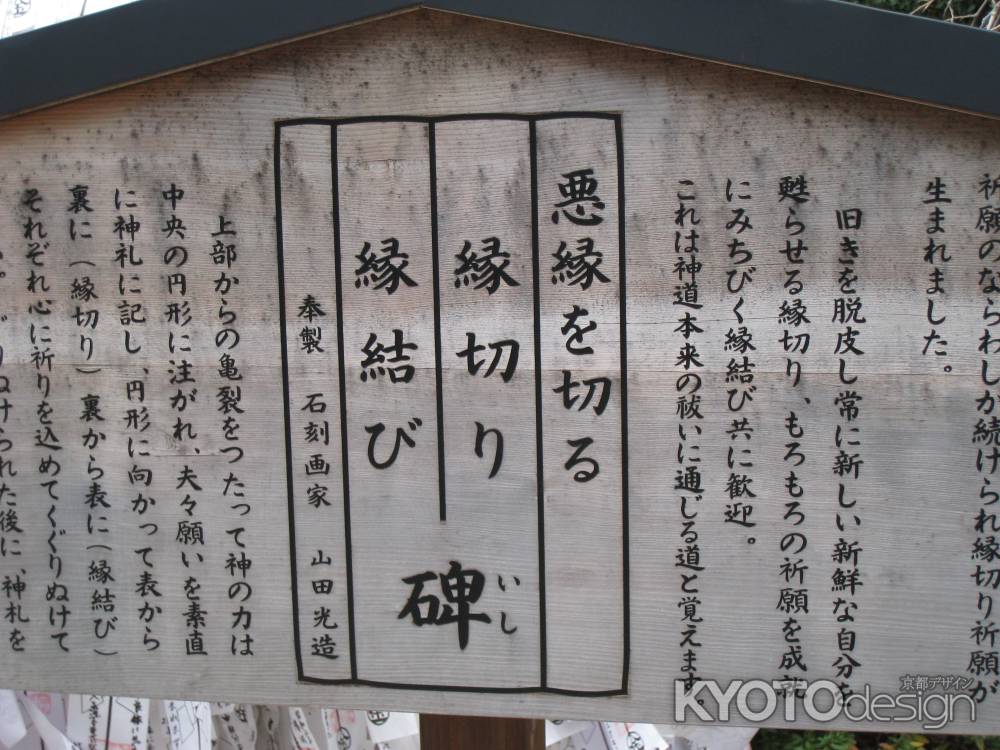 祈願のならわしが続けられ縁切り祈願が
生まれました。
旧きを脱皮し常に新しい新鮮な自分を
甦らせる縁切り、もろもろの祈願を成就
にみちびく縁結び共に歓迎。
これは神道本来の祓いに通じる道と覚えます。
悪縁を切る
縁切り
縁結び
碑
いし
奉製 石刻画家 山田光造
上部からの亀裂をつたって神の力は
中央の円形に注がれ、夫々願いを素直
に神礼に記し、円形に向かって表から
裏に（縁切り）裏から表に（縁結び）
それぞれ心に祈りを込めてくぐりぬけて
りぬけられた後に、神札を
KYOTOdesign
京都デザイン